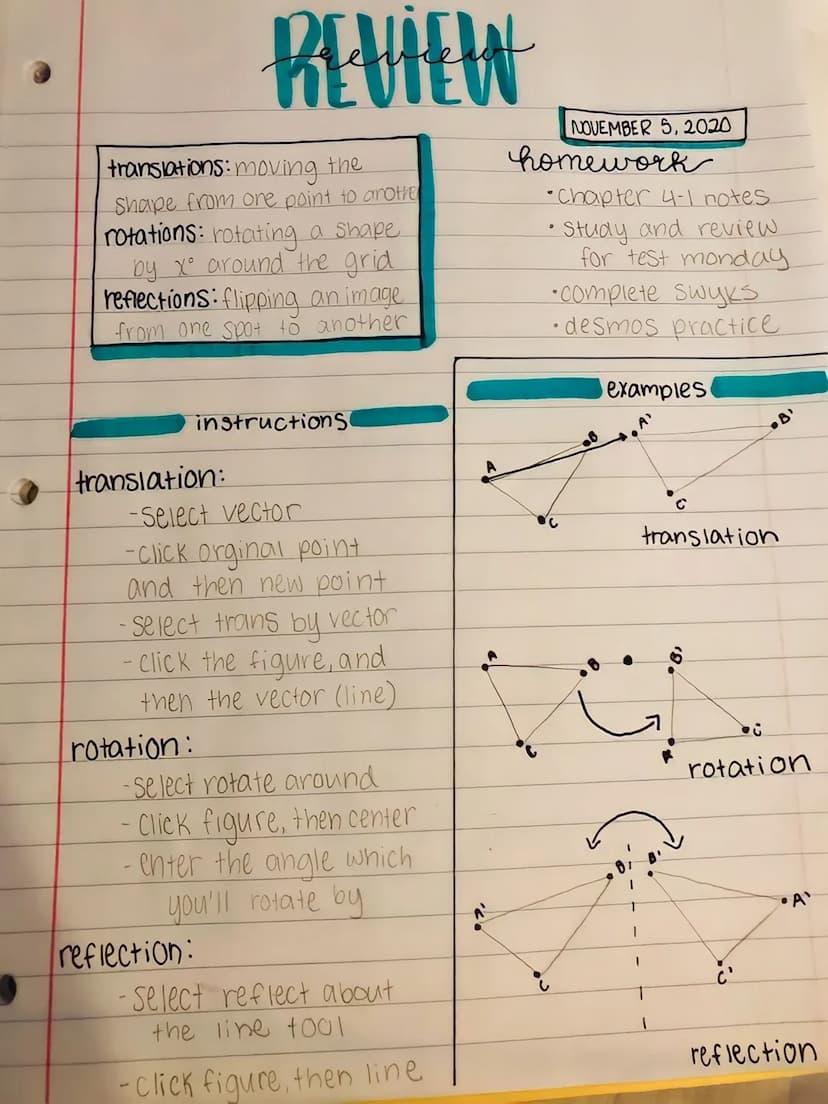 REVIEW
review
NOVEMBER 5, 2020
translations: moving the
shape from one point to another
rotations: rotating a shape
by x° around the grid
reflections: flipping an image
from one spot to another
homework
• chapter 4-1 notes
• study and review
for test monday
• complete swyks
• desmos practice
instructions
translation:
- select vector
- click orginal point
and then new point
- select trans by vector
- click the figure, and
then the vector (line)
rotation:
- select rotate around
- click figure, then center
- enter the angle which
you'll rotate by
reflection:
- select reflect about
the line tool
- click figure, then line
examples
A B A' B'
C C'
translation
A B B'
C A' C'
rotation
B B'
A' A'
C C'
reflection